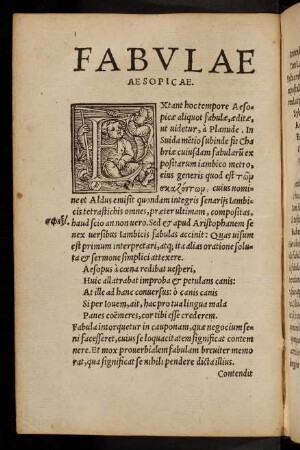 FABVLAE
AESOPICAE.
EXtant hoc tempore Aeso-
picæ aliquot fabulæ, æditæ,
ut uidetur, à Planude. In
Suida mētio subinde fit Cha
briæ cuiusdam fabularū ex
positarum iambico metro,
eius generis quod est τῶμ
σκαζόντωμ. cuius nomi
ne et Aldus emisit quondam integris senarijs Iambi
cis tetrastichis omnes, præter ultimam, compositas,
haud scio an non uero. Sed & apud Aristophanem se
nex uersibus Iambicis fabulas accinit: Quas uisum
est primum interpretari, atq; ita alias oratione solu
ta & sermone simplici attexere.
Aesopus à cœna redibat uesperi,
Huic allatrabat improba & petulans canis:
At ille ad hanc conuersus: ô canis canis
Si per Iouem, ait, hac pro tua lingua mala
Panes coëmeres, cor tibi esse crederem.
Fabula intorquetur in cauponam, quæ negocium se
ni facesseret, cuius se loquacitatem significat contem
nere. Et mox prouerbialem fabulam breuiter memo
rat, qua significat se nihili pendere dicta illius.
Contendit